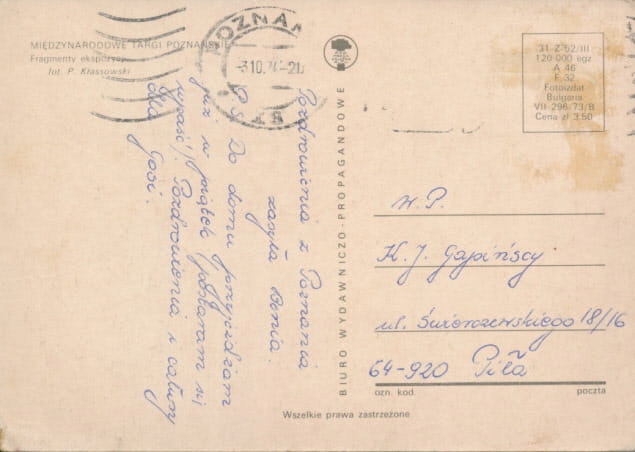 MIĘDZYNARODOWE TARGI POZNAŃSKIE
Fragmenty ekspozycji
fot. P. Krassowski
POZNAŃ
-3.10.74-21
Pozdrowienia z Poznania
zasyła Benia.
P.S. Do domu przyjeżdżam
już w piątek (postaram się
wpaść). Pozdrowienia i całusy
dla Gosi.
BIURO WYDAWNICZO-PROPAGANDOWE
31-Z-52/III
120 000 egz
A 46
F 32
Fotoizdat
Bulgaria
VII-296-73/B
Cena zł 3,50
W.P.
K. J. Gapińscy
ul. Świerczewskiego 18/16
64-920 Piła
ozn. kod. poczta
Wszelkie prawa zastrzeżone